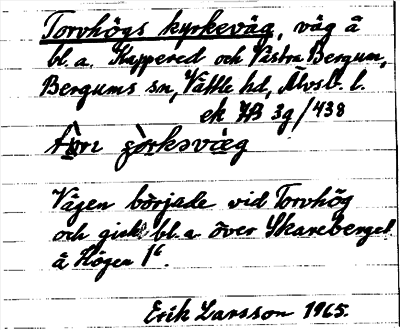 Torvhögs kyrkeväg, väg å
bl.a. Kappered och Västra Bergum,
Bergums sn, Vättle hd, Älvsb. l.
ek JB 3g/438
Vägen började vid Torvhög
och gick bl.a över Skareberget
å Högen 1⁶.
Erik Larsson 1965.